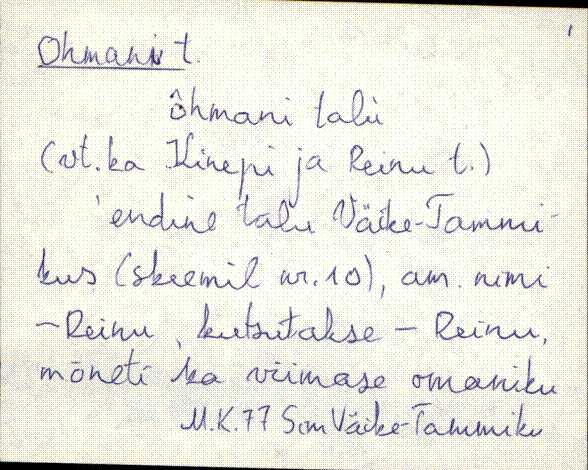 Ohmani t.
ôhmani talu
(vt. ka Kinepi ja Reinu t.)
'endine talu Väike-Tammi-
kus (skeemil nr. 10), am. nimi
– Reinu, kutsutakse – Reinu,
mõneti ka viimase omaniku
M.K.77 Sim Väike-Tammiku